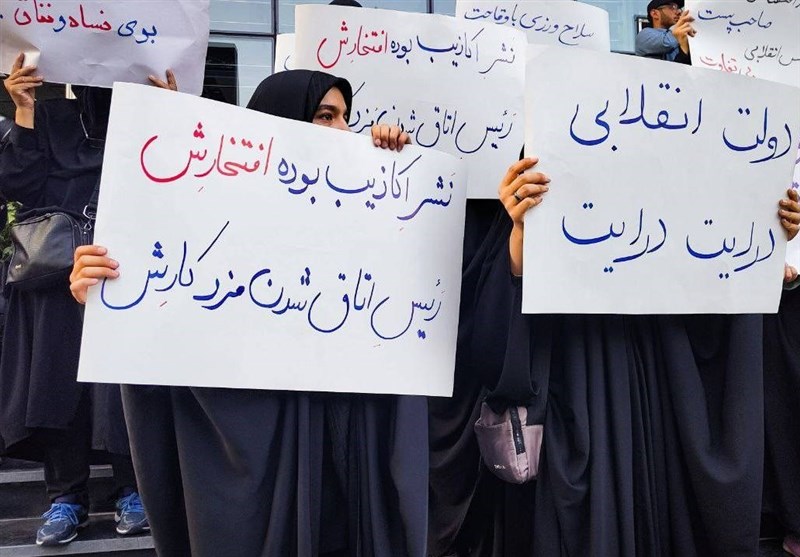 بوی نساه و نتان
نشر اکاذیب بوده افتخارش
رئیس اتاق شدن مزد کارش
سلاح ورزی با وقاحت
صاحب پست
س انقلابی
بی تفاوت
نشر اکاذیب بوده افتخارش
رئیسِ اتاق شدن مزد کارش
دولت انقلابی
درایت درایت